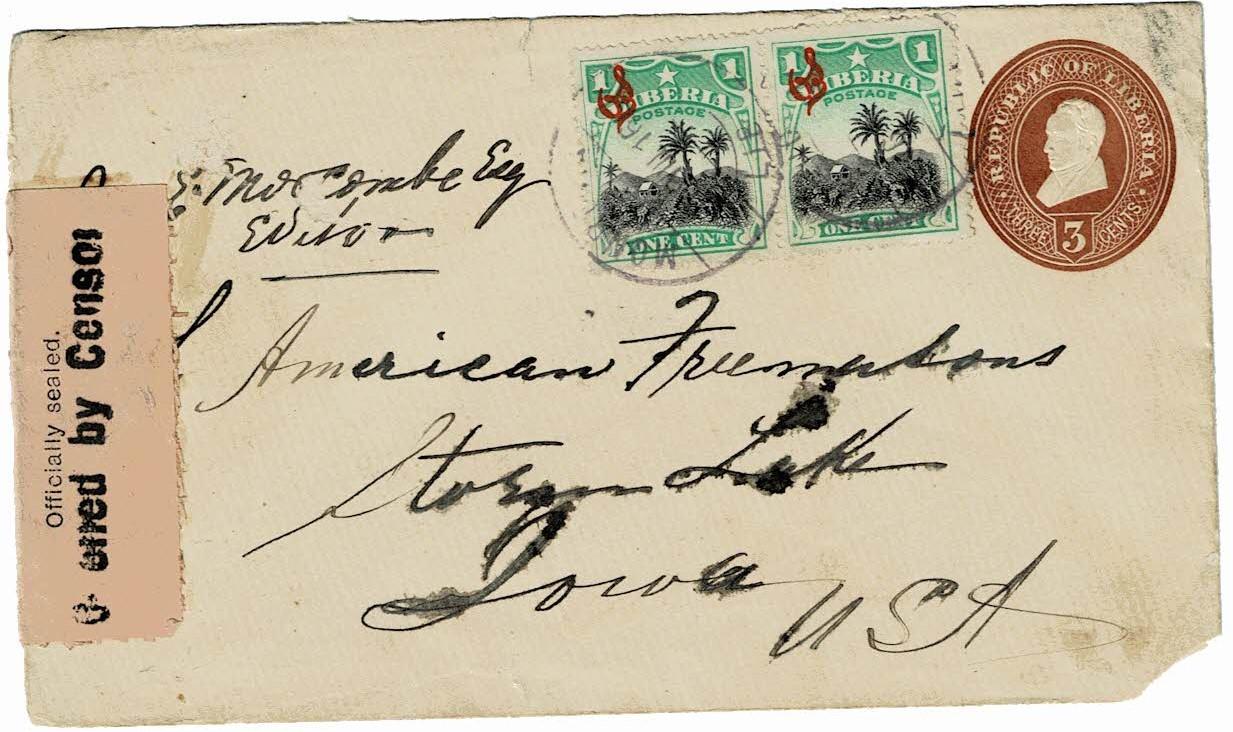 1 LIBERIA 1
POSTAGE
OS
ONE CENT
1 LIBERIA 1
POSTAGE
OS
ONE CENT
REPUBLIC OF LIBERIA
THREE 3 CENTS
Esq
Editor
American Freemasons
Storm Lake
Iowa
USA
Officially sealed.
by Censor